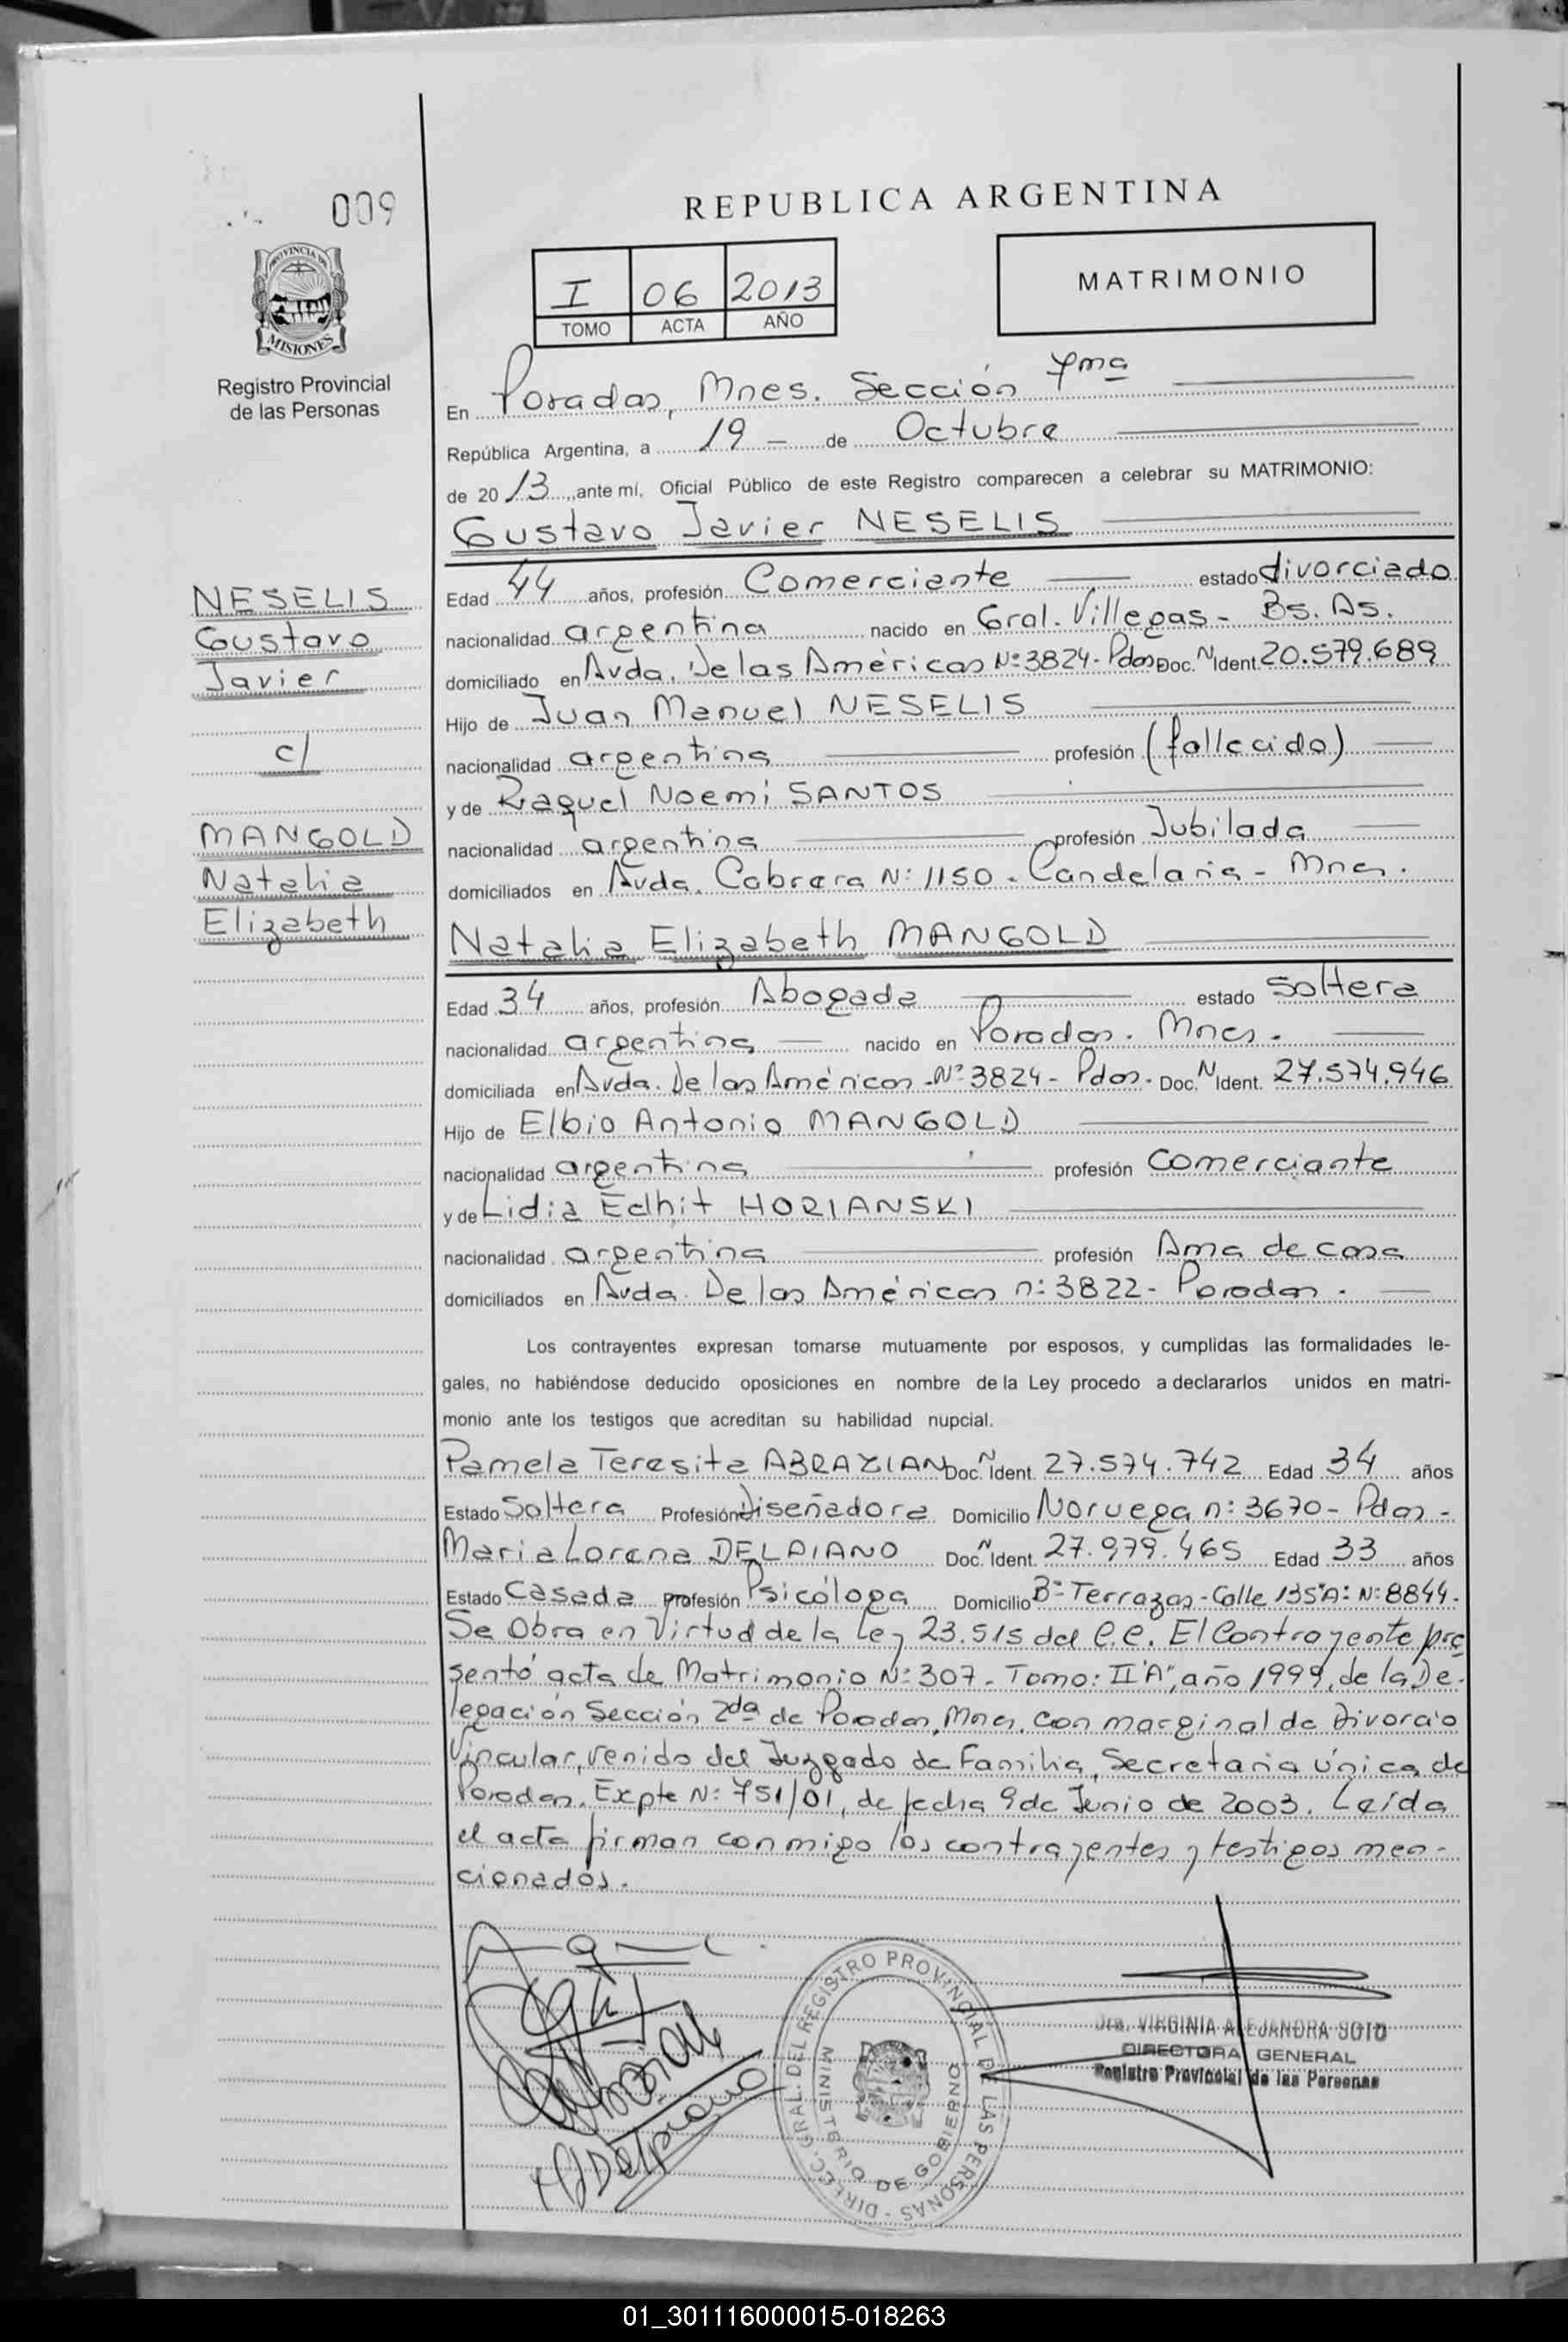 009
PROVINCIA DE
MISIONES
Registro Provincial
de las Personas
REPUBLICA ARGENTINA
I 06 2013
TOMO ACTA AÑO
MATRIMONIO
En Posadas, Mnes. Sección 7ma
República Argentina, a 19 - de Octubre
de 20 13, ante mí, Oficial Público de este Registro comparecen a celebrar su MATRIMONIO:
Gustavo Javier NESELIS
NESELIS
Gustavo
Javier
c/
MANGOLD
Natalia
Elizabeth
Edad 44 años, profesión Comerciante estado divorciado
nacionalidad argentina nacido en Gral. Villegas - Bs. As.
domiciliado en Avda. De las Américas Nº 3824 - Pdas Doc. N Ident. 20.579.689
Hijo de Juan Manuel NESELIS
nacionalidad argentina profesión (fallecido)
y de Raquel Noemi SANTOS
nacionalidad argentina profesión Jubilada
domiciliados en Avda. Cabrera Nº 1150 - Candelaria - Mnes.
Natalia Elizabeth MANGOLD
Edad 34 años, profesión Abogada estado soltera
nacionalidad argentina nacido en Posadas. Mnes.
domiciliada en Avda. De las Américas Nº 3824 - Pdas. Doc. N Ident. 27.574.946
Hijo de Elbio Antonio MANGOLD
nacionalidad argentina profesión Comerciante
y de Lidia Edhit HORIANSKI
nacionalidad argentina profesión Ama de casa
domiciliados en Avda. De las Américas nº 3822 - Posadas.
Los contrayentes expresan tomarse mutuamente por esposos, y cumplidas las formalidades le-
gales, no habiéndose deducido oposiciones en nombre de la Ley procedo a declararlos unidos en matri-
monio ante los testigos que acreditan su habilidad nupcial.
Pamela Teresita ABRAZIAN Doc. N Ident. 27.574.742 Edad 34 años
Estado Soltera Profesión diseñadora Domicilio Noruega nº 3670 - Pdas -
Maria Lorena DELPIANO Doc. N Ident. 27.979.465 Edad 33 años
Estado Casada profesión Psicóloga Domicilio Bº Terrazas - Calle 135"A" Nº 8844.
Se Obra en Virtud de la Ley 23.515 del C.C. El Contrayente pre
sentó acta de Matrimonio Nº 307 - Tomo: II"A", año 1999, de la De-
legación Sección 2da de Posadas, Mnes, con marginal de Divorcio
Vincular, venido del Juzgado de Familia, Secretaria única de
Posadas. Expte Nº 751/01, de fecha 9 de Junio de 2003. Leída
el acta firman conmigo los contrayentes y testigos men-
cionados.
DIREC. GRAL. DEL REGISTRO PROVINCIAL DE LAS PERSONAS -
MINISTERIO DE GOBIERNO
Dra. VIRGINIA ALEJANDRA SOTO
DIRECTORA GENERAL
Registro Provincial de las Personas
MLDelpiano
01_301116000015-018263